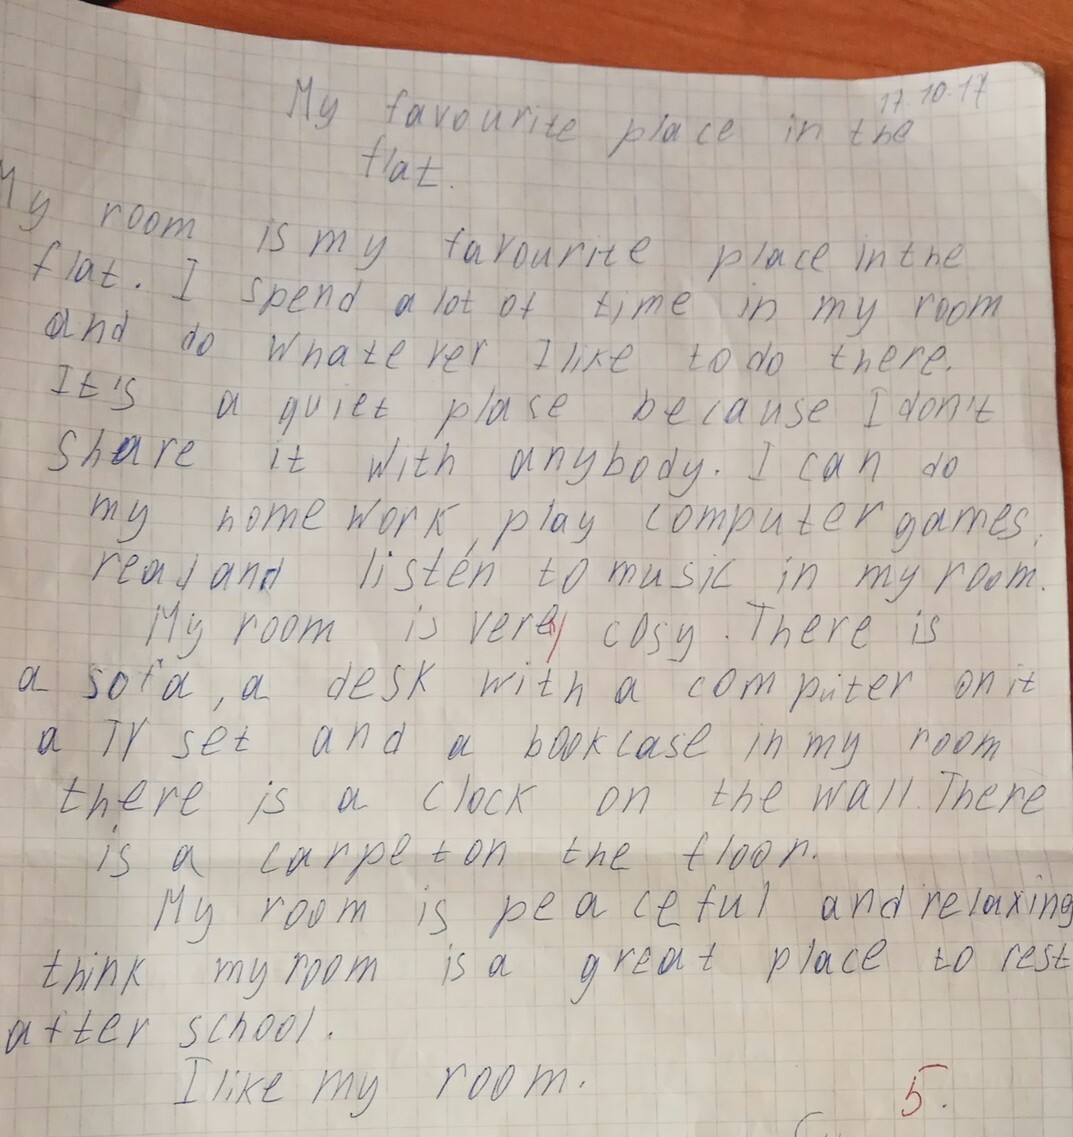 17.10.17
My favourite place in the
flat.
My room is my favourite place in the
flat. I spend a lot of time in my room
and do whatever I like to do there.
It's a quiet plase because I don't
share it with anybody. I can do
my homework, play computer games,
read and listen to music in my room.
My room is very cosy. There is
a sofa, a desk with a computer on it
a TV set and a bookcase in my room
there is a clock on the wall. There
is a carpet on the floor.
My room is peaceful and relaxing
think my room is a great place to rest
after school.
I like my room.
5.